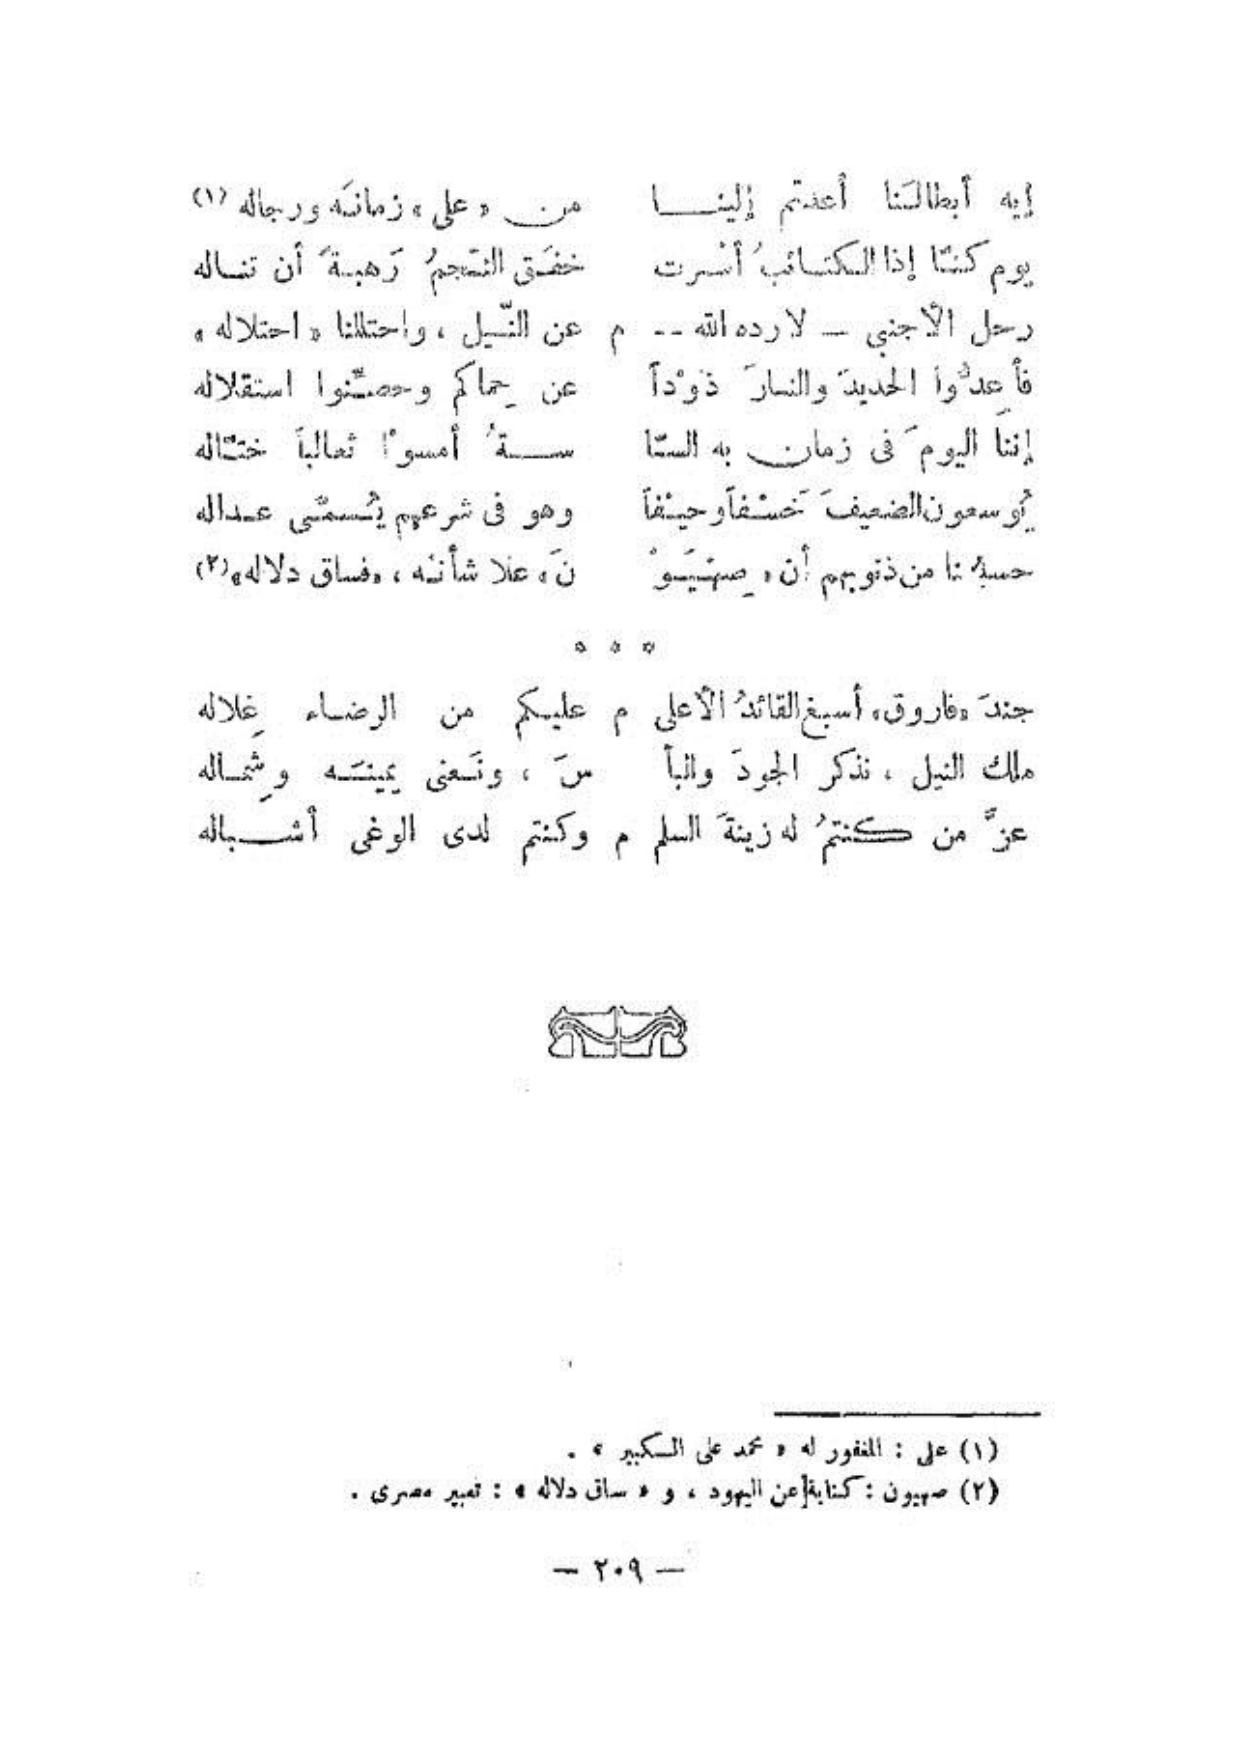 إيه أبطالَنا أعدتم إلينـــا من « على » زمانَه ورجاله (١)
يوم كنَّا إذا الكتائبُ أسْرت خفَق النَّجمُ رَهبةً أن تناله
رحل الأجنبي — لا رده الله — م عن النِّيل ، واحتللنا « احتلاله »
فأعِدُّوا الحديدَ والنارَ ذوْداً عن حِماكم وحصِّنوا استقلاله
إننا اليومَ فى زمان به السا ســـةُ أمسوْا ثعالباً ختَّاله
يُوسعون الضعيفَ خَسْفاً وحيْفاً وهو فى شرعهم يُسمَّى عداله
حسبُنا من ذنوبهم أن « صِهْيَوْ نَ » علا شأنُه ، « فساق دلاله » (٢)
* * *
جندَ « فاروق » أسبغ القائدُ الأعلى م عليكم من الرضاء غِلاله
ملك النيل ، نذكر الجودَ والبأ سَ ، ونَعنى يمينَه وشِماله
عزَّ من كنتمُ له زينةَ السلم م وكنتم لدى الوغى أشباله
(١) على : المغفور له « محمد على الكبير » .
(٢) صهيون : كناية عن اليهود ، و « ساق دلاله » : تعبير مصرى .
— ٢٠٩ —